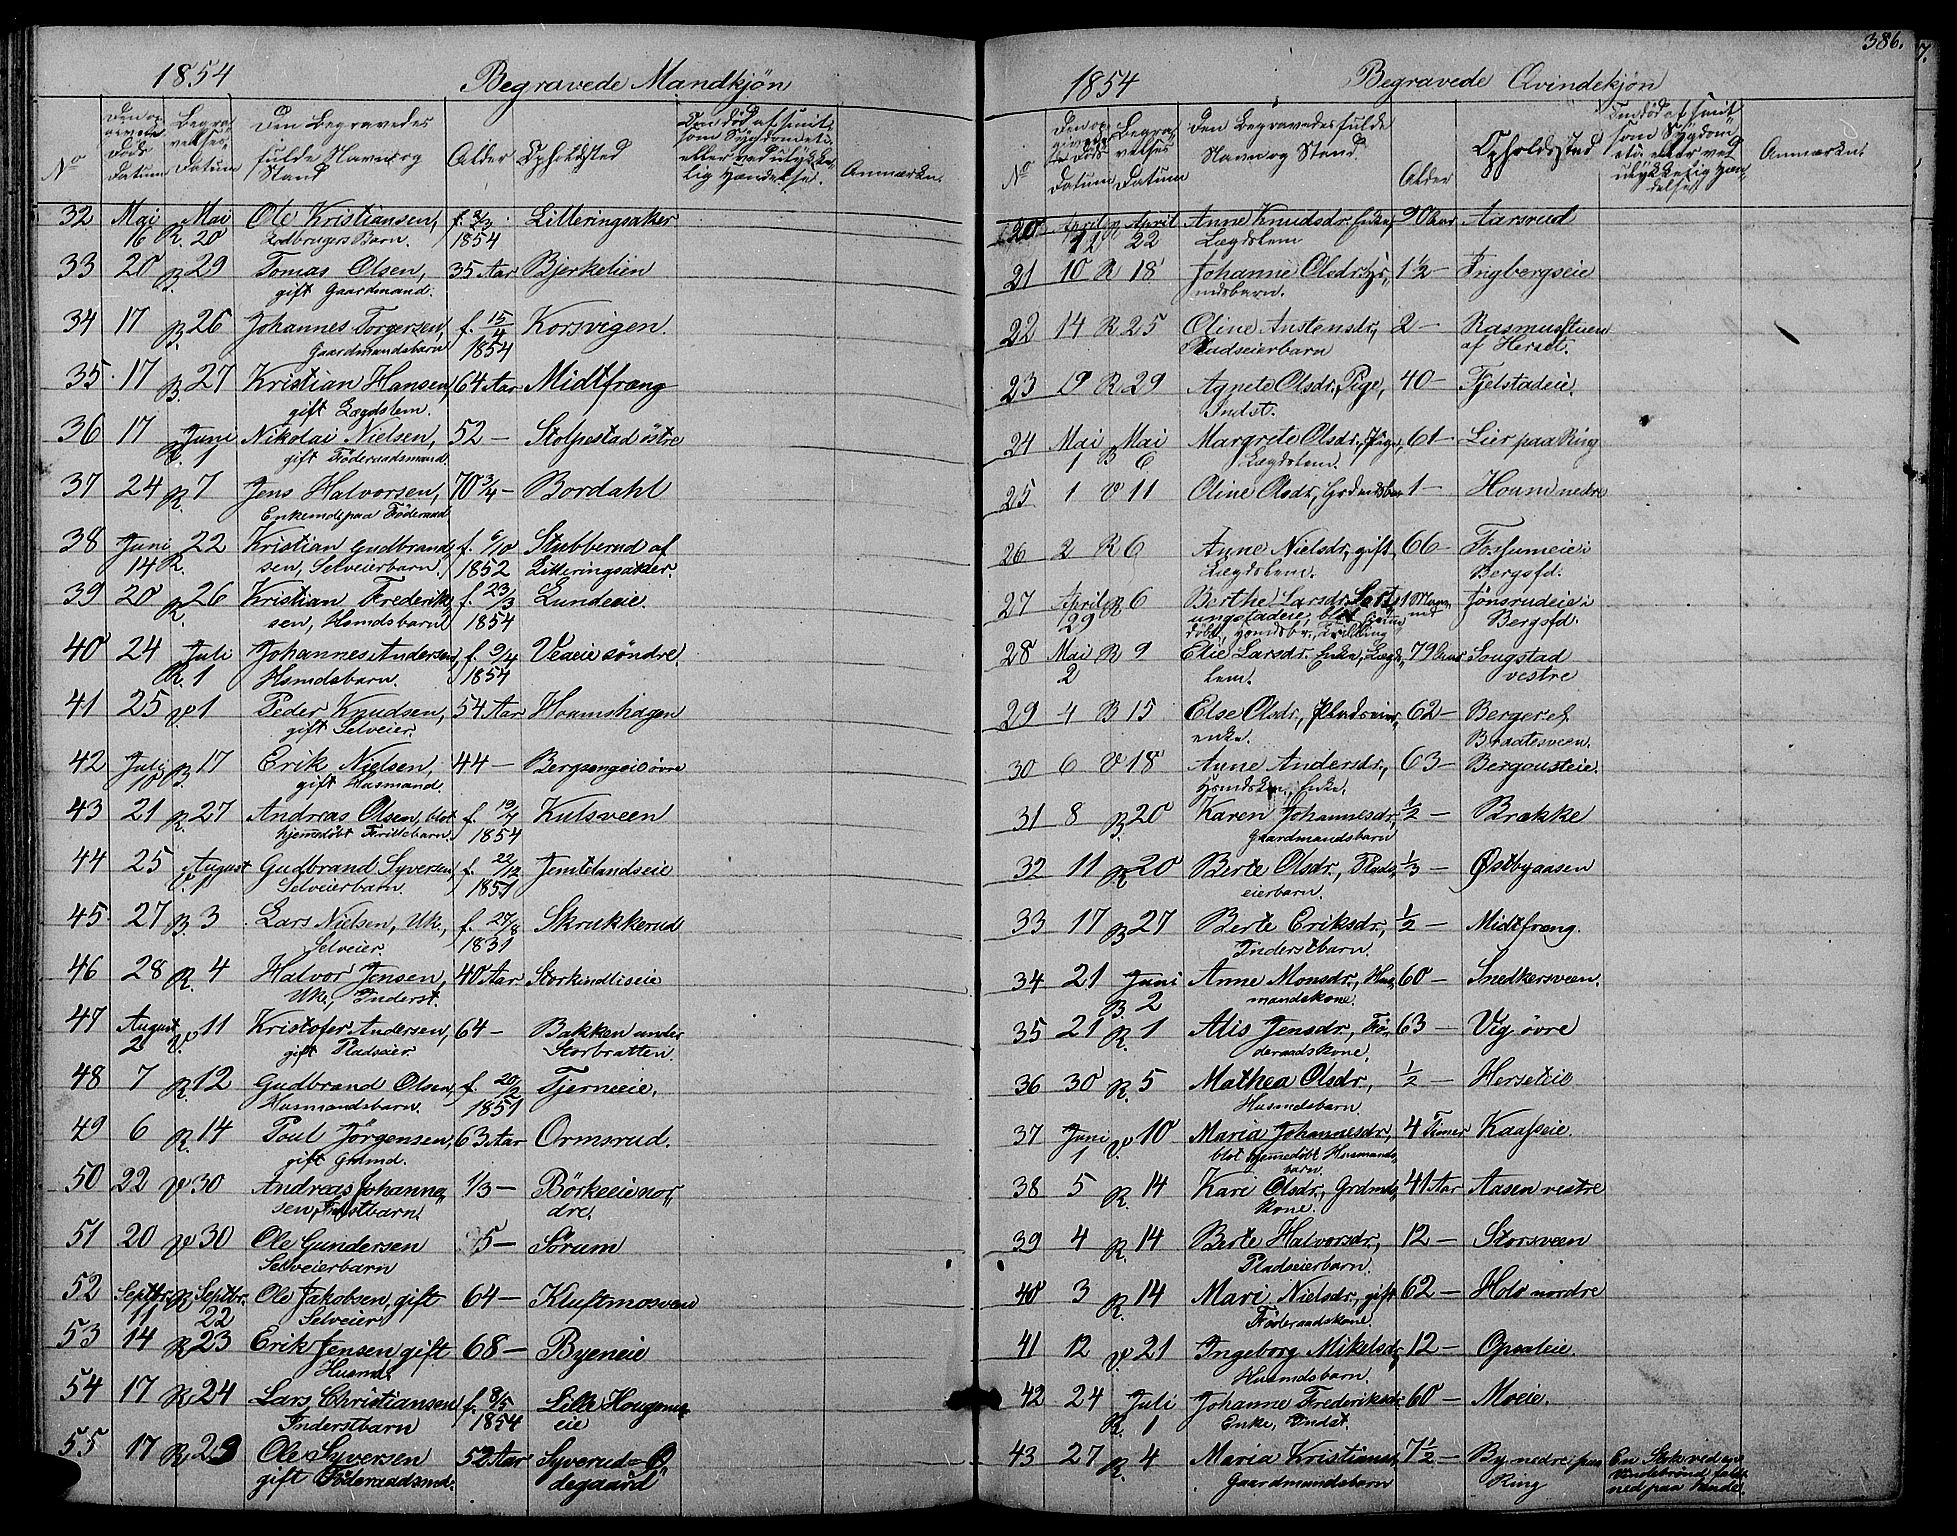 386.
1854
Begravede Mandkjøn
No
Den opgivne Døds Datum
Begravelses Datum
Den Begravedes fulde Navn og Stand
Alder
Opholdsted
Anmærkn.
32 Mai 16 R. Mai 20 Ole Kristiansen, f. 1854 Litteringsaker
Jordbrugers Barn.
33 20 R. 29 Tomas Olsen, 35 Aar Bjerkelien
gift Gaardmand.
34 17 R. 26 Johannes Torgersen, f. 15/4 1854 Korsvigen.
Gaardmandsbarn
35 17 B. 27 Kristian Hansen, 64 Aar Midtfrang
gift Lægdslem.
36 17 Juni 1 Nikolai Nielsen, 52 — Stolpestad östre
gift Föderaadsmand.
37 24 R. 7 Jens Halvorsen, 70 3/4 — Bordahl
Enkemd. paa Föderaad
38 Juni 14 R. 22 Kristian Gudbrandsen, Selveierbarn. f. 6/10 1852 Stubberud af Litteringsaker.
39 20 R. 26 Kristian Frederiksen, Hsmdsbarn f. 23/3 1854 Lundeeie.
40 24 Juli R. 1 Johannes Andersen, f. 9/4 1854 Veeeie söndre.
Hsmdsbarn.
41 25 V. 1 Peder Knudsen, 54 Aar Houmshagen
gift Selveier.
42 Juli 10 B. 17 Erik Nielsen, 44 — Bergsengeie övre
gift Husmand
43 21 R. 27 Andreas Olsen, blot f. 19/7 1854 Kulsveen
hjemdöbt
44 25 V. August Gudbrand Syversen, f. 22/12 1851 Jemtelandseie
Selveierbarn.
45 27 B. 3 Lars Nielsen, Uk., f. 27/8 1831 Skrukkerud
Selveier.
46 28 R. 4 Halvor Jensen, 40 Aar Storkindliseie
Uk., Inderst.
47 August 2 V. 11 Kristofer Andersen, 64 — Bakken under Storbratten.
gift Pladseier
48 7 R. 12 Gudbrand Olsen, f. 20/2 1851 Tjerneeie.
Husmandsbarn.
49 6 R. 14 Poul Jörgensen, 63 Aar Ormsrud.
gift Grdmd.
50 22 V 30 Andreas Johannesen, Indstbarn. 1/3 — Börkeeie nordre.
51 20 V 30 Ole Gundersen 5 — Sörum
Selveierbarn
52 Septbr. 11 R Septbr. 22 Ole Jakobsen, gift 64 — Kluftmosveen
Selveier
53 14 R 23 Erik Jensen gift 68 — Byeneie
Husmd.
54 17 R 24 Lars Christiansen f. 8/5 1854 Lille Hougmeie
Inderstbarn
55 17 R 23 Ole Syversen 52 Aar Syverud=Ödegaard
gift Föderaadsmd.
1854
Begravede Qvindekjøn
No
Den opgivne Døds Datum
Begravelses Datum
Den Begravedes fulde Navn og Stand.
Alder
Opholdssted
Anmærkn.
20 April R April 22 Anne Knudsdr. Enke, 90 Aar Aarsrud
Lægdslem
21 10 R 18 Johanne Olsdr. Hsmdsbarn. 1 1/2 — Ingbergseie
22 14 R 25 Oline Austensdr., 2 — Rasmusstuen af Herset.
Pladseierbarn
23 19 R 29 Agnete Olsdr. Pige, 40 — Fjelstadeie.
Indst.
24 Mai 1 B Mai 6 Margrete Olsdr., Pige, 61 — Lier paa Ring
Lægdslem.
25 1 V 11 Oline Olsdr., Grdmdsbarn 1 — Houm nedre
26 2 R 6 Anne Nielsdr., gift, 66 — Fossumeie i Bergsfd.
Lægdslem.
27 April 29 R 6 Berthe Larsdr. 1 Jönsrudeie i Bergsfd.
28 Mai 2 R 9 Elie Larsdr. Enke, Lægdslem. 79 Aar Sougstad vestre
29 4 B 15 Else Olsdr., Pladseierenke. 62 — Berger ef. Braatesveen.
30 6 V 18 Anne Andersdr., 63 — Bergouseie.
Enke.
31 8 B. 20 Karen Johannesdr., 1/2 — Brække
Gaardmandsbarn
32 11 R 20 Berte Olsdr., Pladseierbarn. 1/3 — Østbyaasen
33 17 B 27 Berte Eriksdr., 1/2 — Midtfrang.
Inderstbarn.
34 21 Juni B. 2 Anne Monsdr., Husmandskone. 60 — Snedkersveen.
35 21 R. 1 Alis Jensdr., Föderaadskone. 63 — Vig övre
36 30 R. 5 Mathea Olsdr., 1/2 — Herseteie
Husmdsbarn.
37 Juni 1 V. 10 Maria Johannesdr., 4 Timer Kaasseie.
blot hjemedöbt Husmandsbarn.
38 5 R. 14 Kari Olsdr., Grdmdskone. 41 Aar Aasen vestre
39 4 R. 14 Berte Halvorsdr., 12 — Storsveen
Pladseierbarn.
40 3 R. 14 Mari Nielsdr., gift 62 — Hole nordre
Föderaadskone.
41 12 V. 21 Ingeborg Mikelsdr. 12 — Opsaleie.
Husmdsbarn.
42 24 Juli R. 1 Johanne Frederiksdr. 60 — Moeie.
Enke, Indst.
43 27 R. 4 Maria Kristiansdr. 7 1/2 — By nedre paa Ring
Gaardmandsbarn